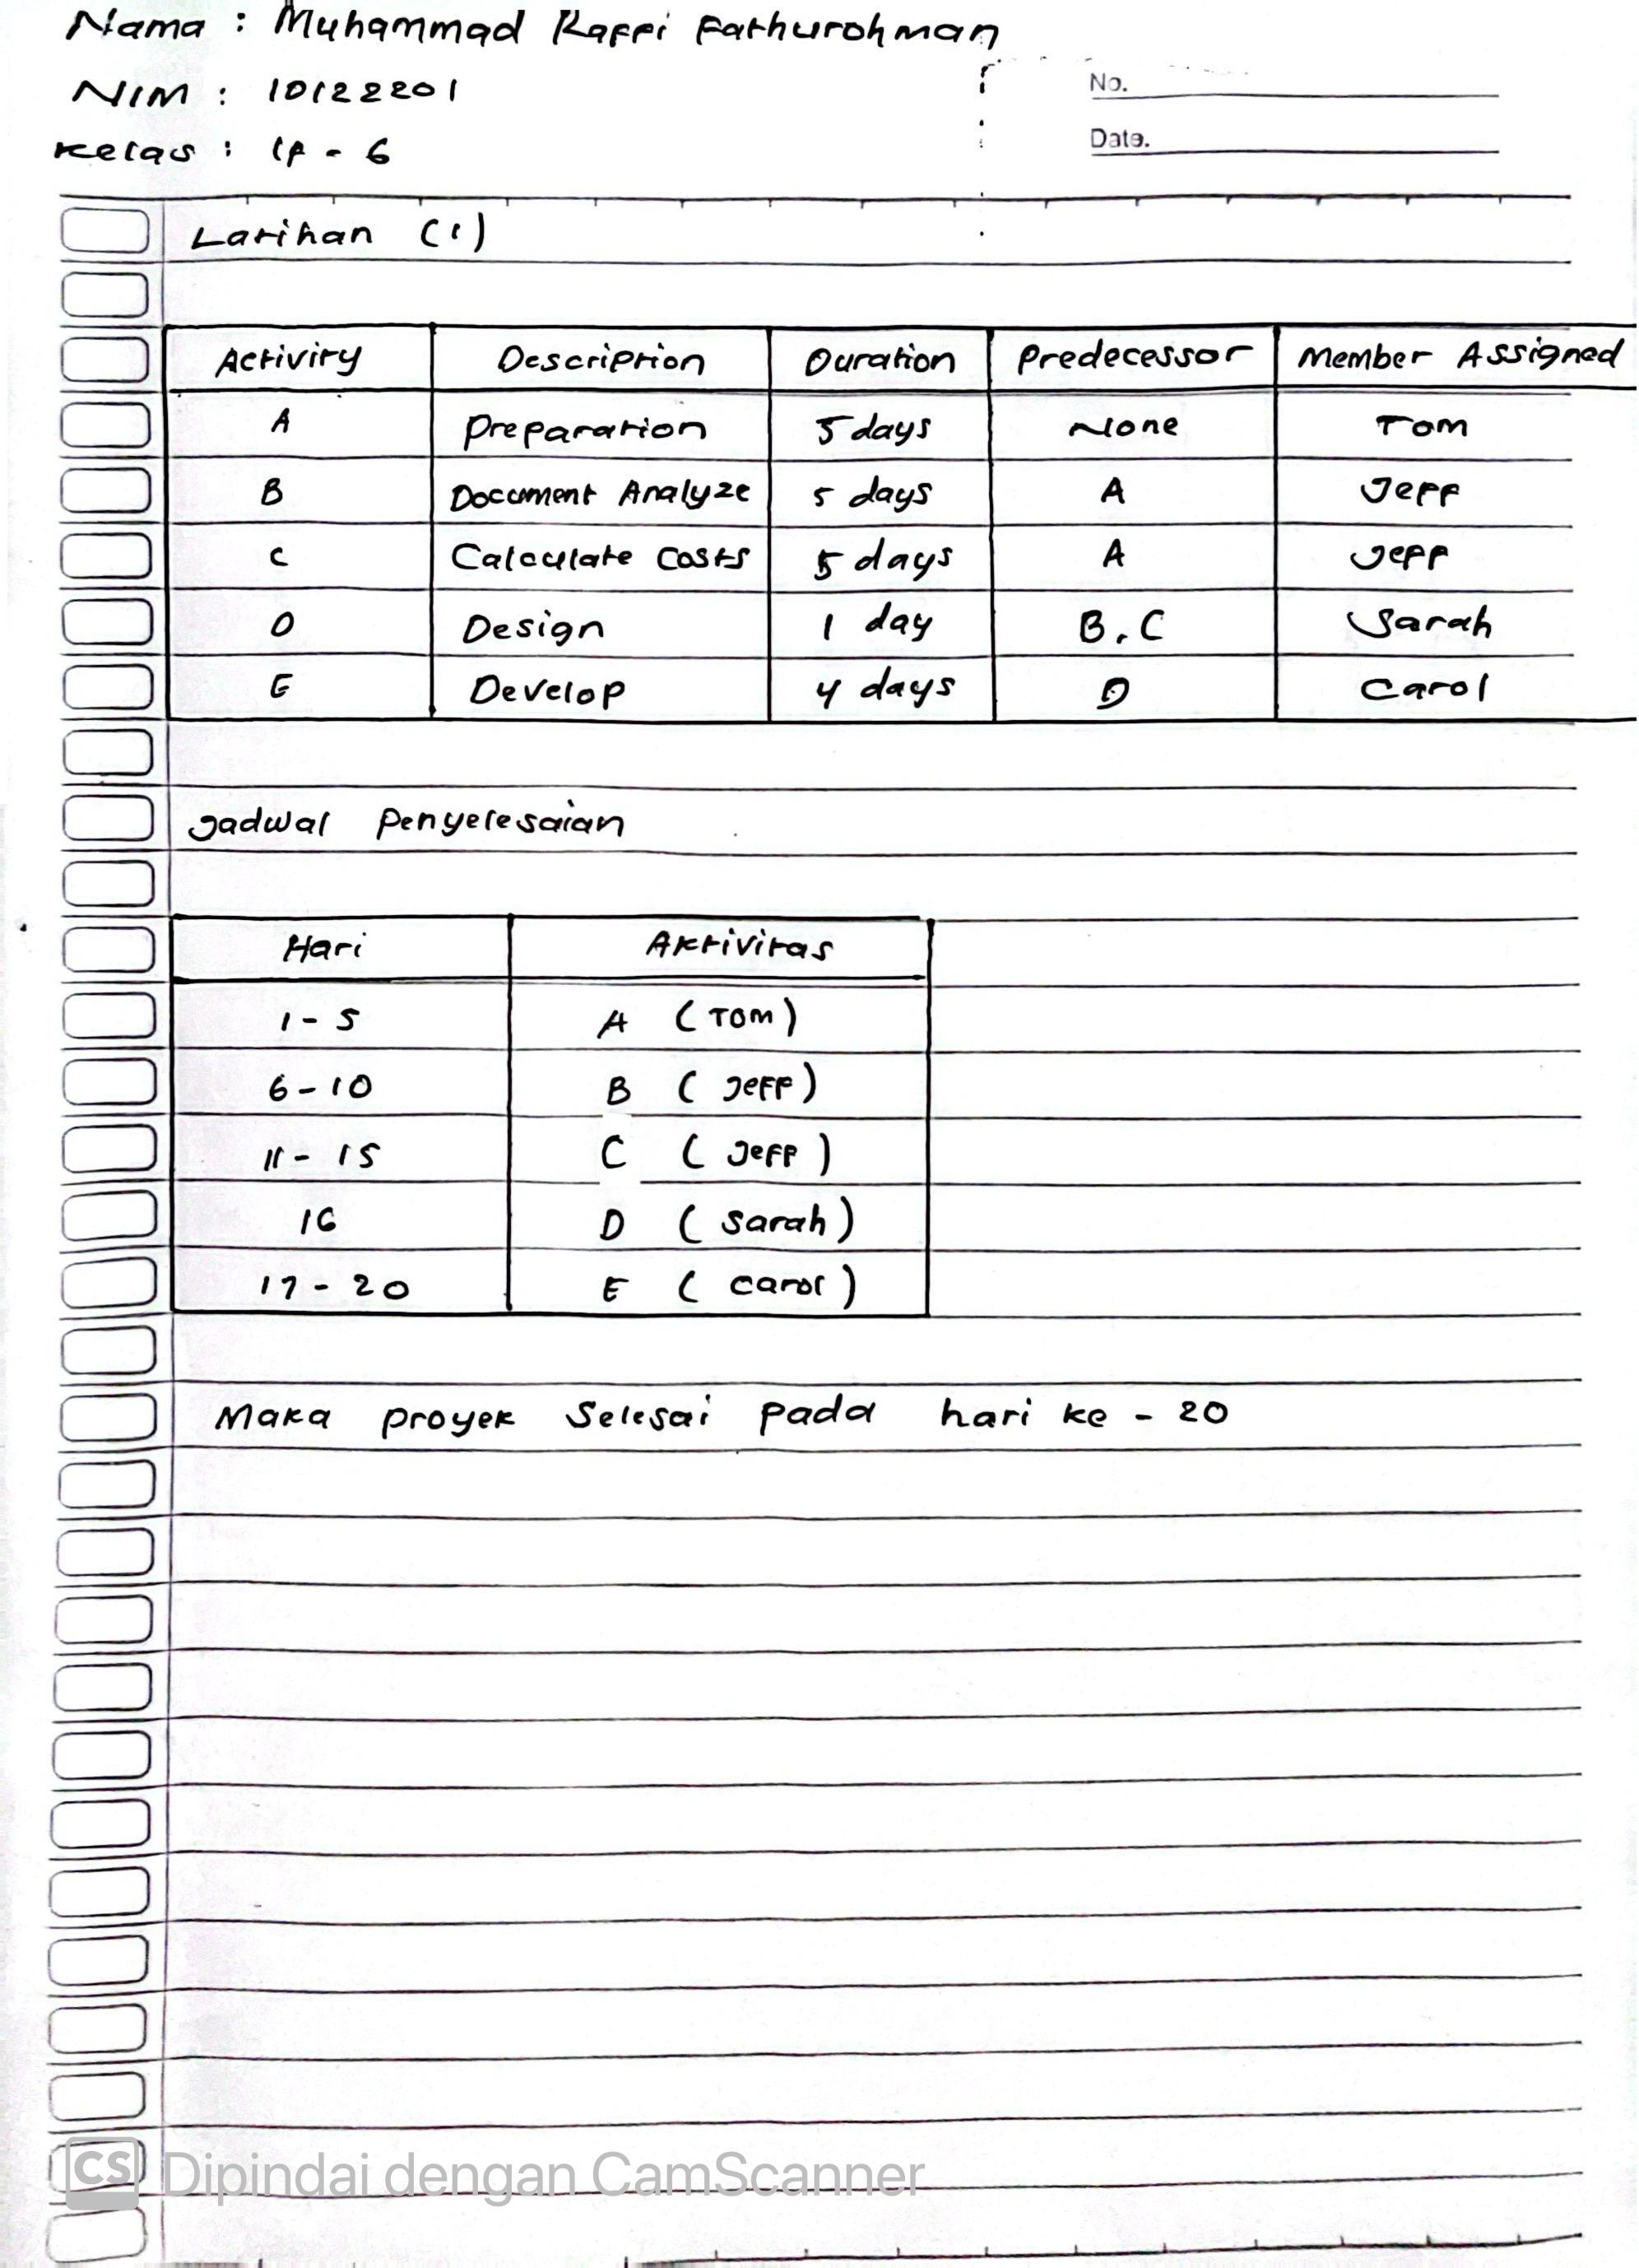 Nama : Muhammad Raffi Fathurohman
NIM : 10122201
Kelas : IF - 6
No.
Date.
Latihan (1)
Activity Description Duration Predecessor Member Assigned
A Preparation 5 days None Tom
B Document Analyze 5 days A Jeff
C Calculate Costs 5 days A Jeff
D Design 1 day B, C Sarah
E Develop 4 days D Carol
Jadwal Penyelesaian
Hari Aktivitas
1 - 5 A (Tom)
6 - 10 B (Jeff)
11 - 15 C (Jeff)
16 D (Sarah)
17 - 20 E (Carol)
Maka proyek selesai pada hari ke - 20
CS Dipindai dengan CamScanner